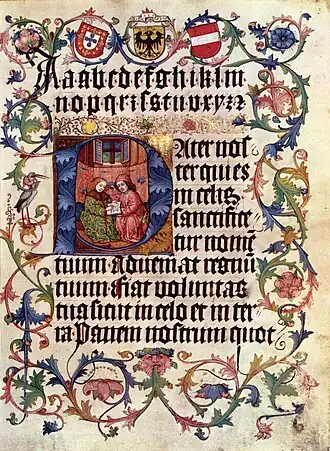 Aaabcdefghiklm
nopqrrsstuvxyzz
Pater nos
ter qui es
in celis
sanctifice
tur nomē
tuum Adveniat regnū
tuum fiat voluntas
tua sicut in celo et in ter
ra Panem nostrum quot